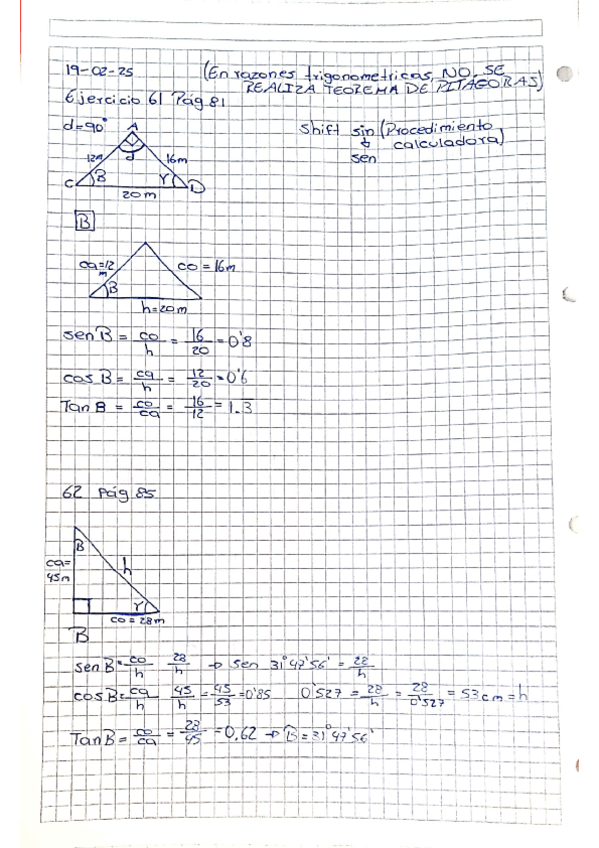 19-02-25 (En razones trigonometricas, NO SE
REALIZA TEOREMA DE PITAGORAS)
Ejercicio 61 Pág.81
d=90° A
Shift sin (Procedimiento
sen calculadora)
12m d 16m
C B Y D
20m
B
ca=12
m
co = 16m
B
h=20m
sen B = co/h = 16/20 = 0'8
cos B = ca/h = 12/20 = 0'6
Tan B = co/ca = 16/12 = 1.3
62 Pág.85
B
ca=
45m
h
Y
co = 28m
B
sen B = co/h 28/h → sen 31°47'56' = 28/h
cos B = ca/h 45/h = 45/53 = 0'85 0'527 = 28/h = 28/0'527 = 53cm = h
Tan B = co/ca = 28/45 = 0,62 → B = 31°47'56'